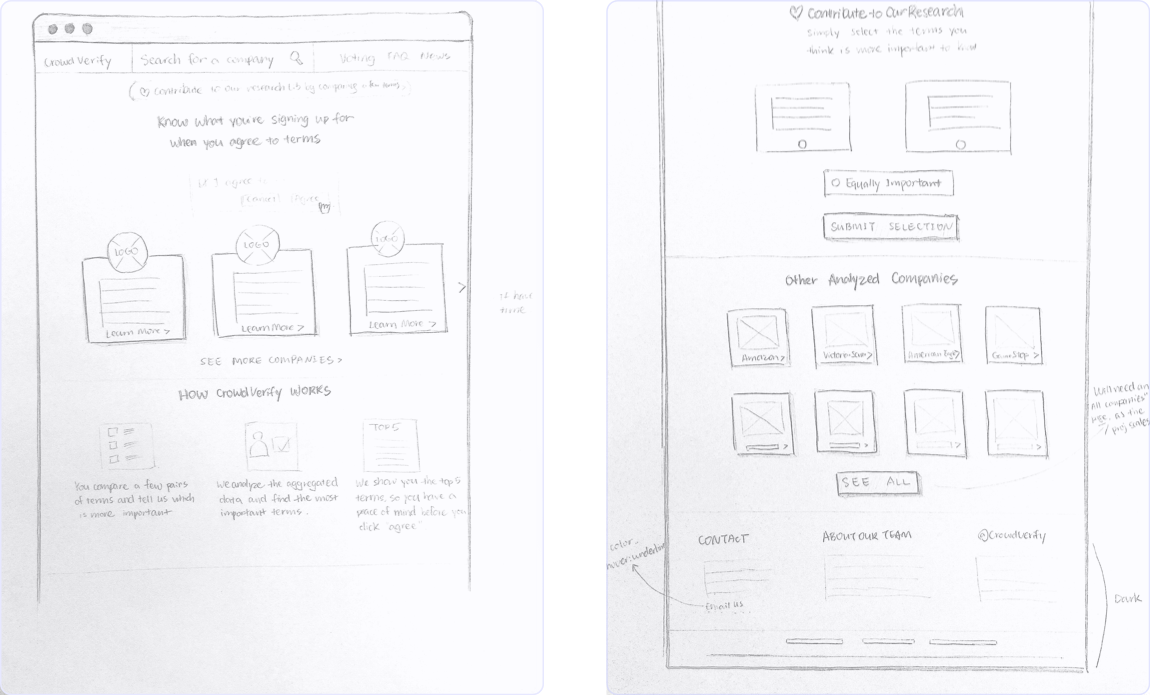 CrowdVerify
Search for a company
Voting FAQ News
Contribute to our research by comparing a few terms
Know what you're signing up for
when you agree to terms
I agree
Cancel Agree
LOGO LOGO LOGO
Learn More > Learn More > Learn More >
>
SEE MORE COMPANIES >
HOW CrowdVerify WORKS
TOP 5
You compare a few pairs
of terms and tell us which
is more important
We analyze the aggregated
data and find the most
important terms.
We show you the top 5
terms so you have a
peace of mind before you
click agree"
♡ Contribute to Our Research
Simply select the terms you
think is more important to
O Equally Important
SUBMIT SELECTION
Other Analyzed Companies
Amazon >
>
>
GameStop >
> > > >
SEE ALL
We'll need an
"All companies"
page, as the
proj scales
CONTACT
Email us
ABOUT OUR TEAM
@CrowdVerify
color
hover: underline
Dark